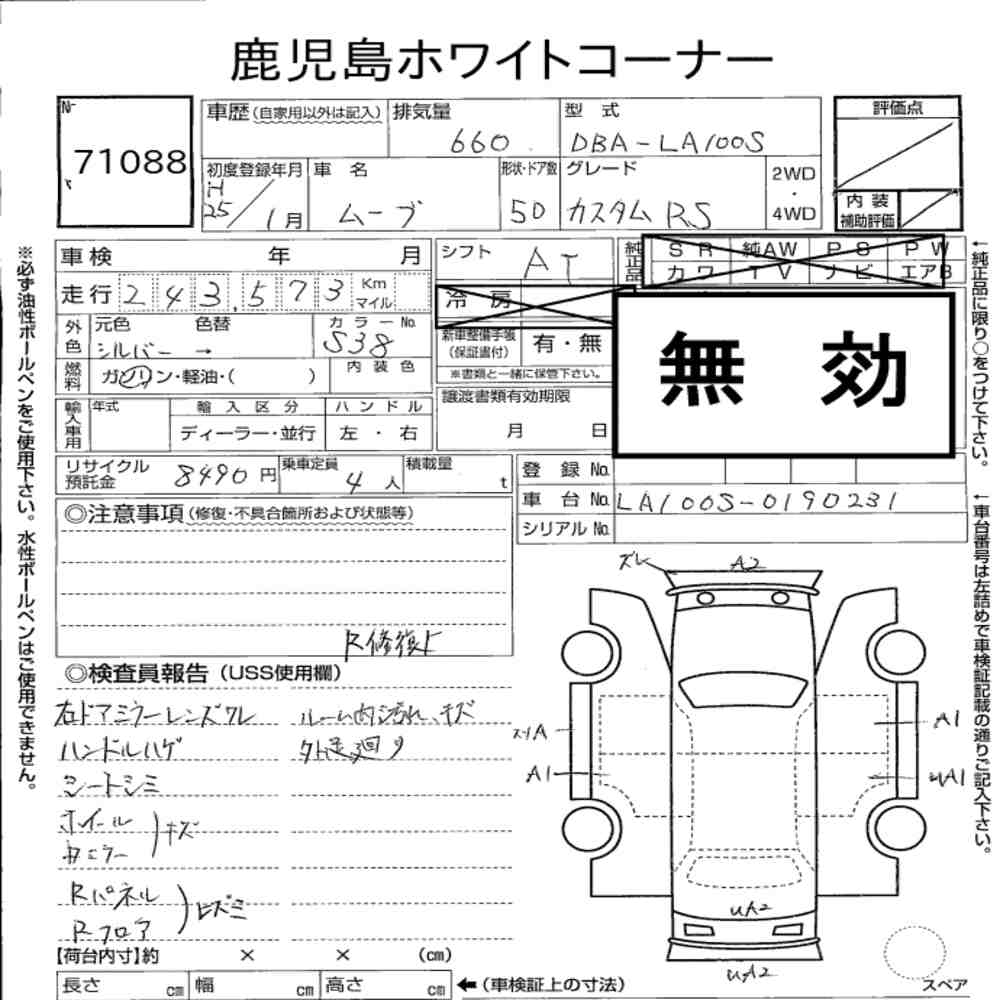 鹿児島ホワイトコーナー
71088
車歴(自家用以外は記入) 排気量 型式 評価点
660 DBA-LA100S
初度登録年月 車名 形状・ドア数 グレード 2WD・4WD 内装補助評価
H25/1月 ムーブ 5D カスタム RS
車検 年 月 シフト AT
純正品 SR 純AW PS PW
カワ TV ナビ エアB
走行 243,573 Km マイル 冷房
外色 元色 色替 カラーNo.
シルバー → S38
新車整備手帳(保証書付) 有・無
※書類と一緒に保管下さい。
無効
燃料 ガソリン・軽油・( ) 内装色
譲渡書類有効期限
月 日
輸入車用 年式 輸入区分 ハンドル
ディーラー・並行 左・右
リサイクル預託金 8490円 乗車定員 4人 積載量 t
登録No.
車台No. LA100S-0190231
シリアルNo.
◎注意事項(修復・不具合箇所および状態等)
R修復上
◎検査員報告(USS使用欄)
右ドアミラーレンズワレ ルーム内汚れ、キズ
ハンドルハゲ 外装廻り
シートシミ
ホイール
キズ
Rパネル
Rフロア
ヒズミ
ズレ A2
A
A1
A1
UA1
UA2
UA2
スペア
【荷台内寸】約 × × (cm)
長さ cm 幅 cm 高さ cm ←(車検証上の寸法)
※必ず油性ボールペンをご使用下さい。水性ボールペンはご使用できません。
←純正品に限り○をつけて下さい。
←車台番号は左詰めで車検証記載の通りご記入下さい。